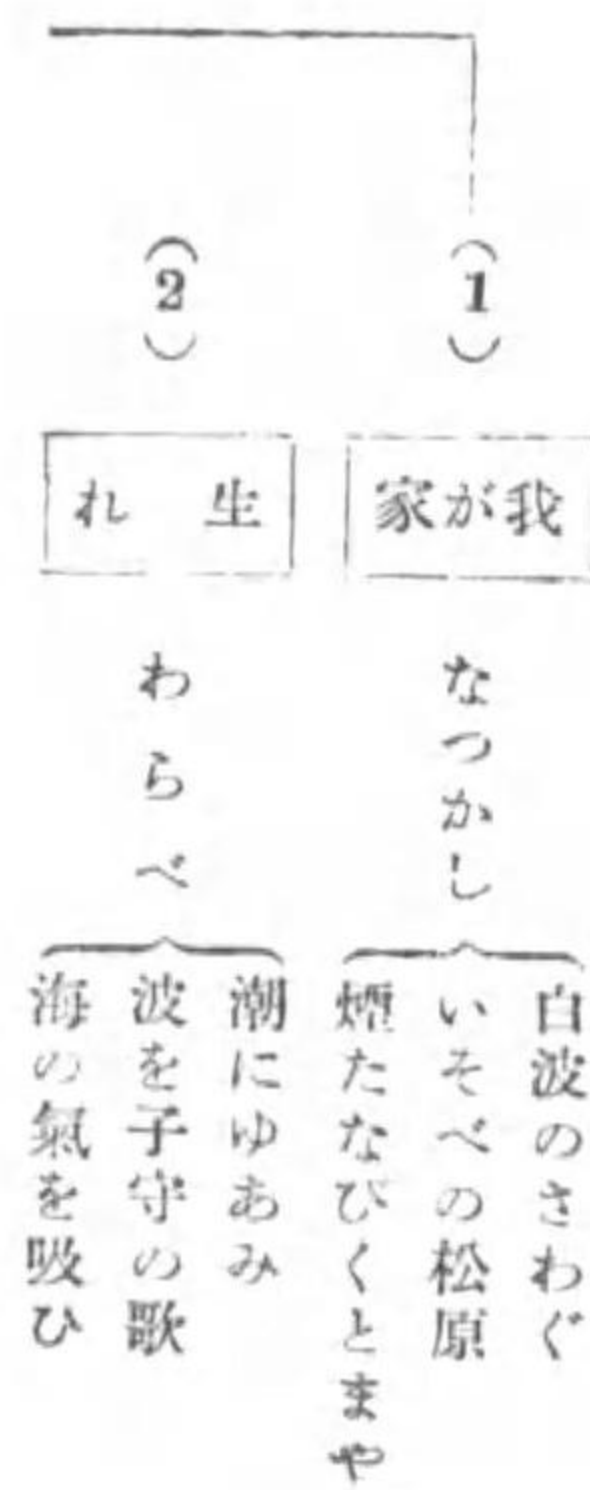 (1)
我が家
なつかし
白波のさわぐ
いそべの松原
煙たなびくとまや
(2)
生れ
わらべ
潮にゆあみ
波を子守の歌
海の氣を吸ひ